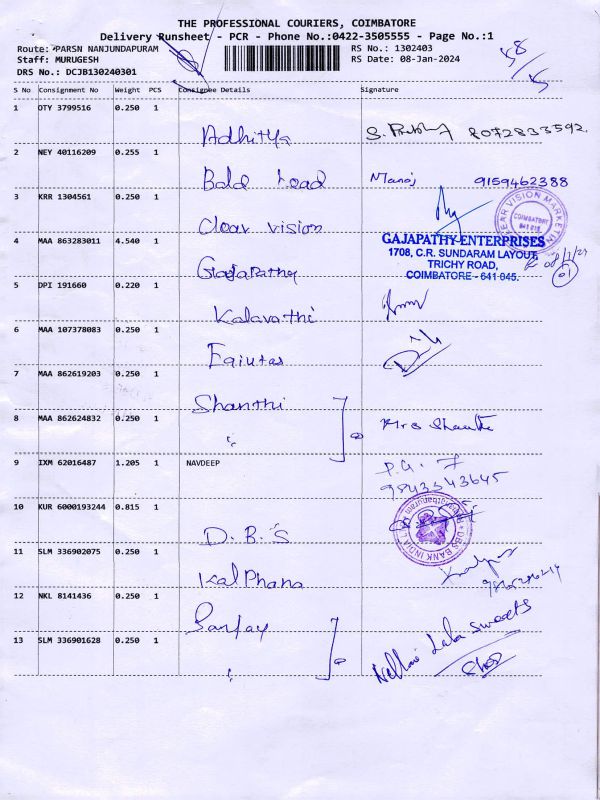 THE PROFESSIONAL COURIERS, COIMBATORE
Delivery Runsheet - PCR - Phone No.:0422-3505555 - Page No.:1
Route: PARSN NANJUNDAPURAM RS No.: 1302403
Staff: MURUGESH RS Date: 08-Jan-2024
DRS No.: DCJB130240301
58/5
S No Consignment No Weight PCS Consignee Details Signature
1 OTY 3799516 0.250 1
Adhitya 8072833592.
2 NEY 40116209 0.255 1
Bold Load Manoj 9159462388
3 KRR 1304561 0.250 1
Clear vision
COIMBATORE
641 015
4 MAA 863283011 4.540 1
GAJAPATHY ENTERPRISES
1708, C.R. SUNDARAM LAYOUT,
TRICHY ROAD,
COIMBATORE - 641 045.
Gajapathy
5 DPI 191660 0.220 1
Kalavathi
6 MAA 107378083 0.250 1
Equitas
7 MAA 862619203 0.250 1
Shanthi
8 MAA 862624832 0.250 1
" Mrs Shanthi
9 IXM 62016487 1.205 1 NAVDEEP
9843343645
10 KUR 6000193244 0.815 1
D.B.S
DBS BANK INDIA
11 SLM 336902075 0.250 1
Kalphana
12 NKL 8141436 0.250 1
Sanjay
13 SLM 336901628 0.250 1
" Nellai Lala Sweets